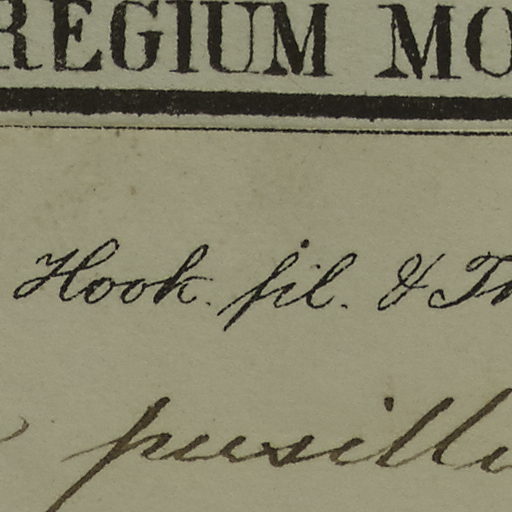 REGIUM MO
Hook. fil. & Th
pusill